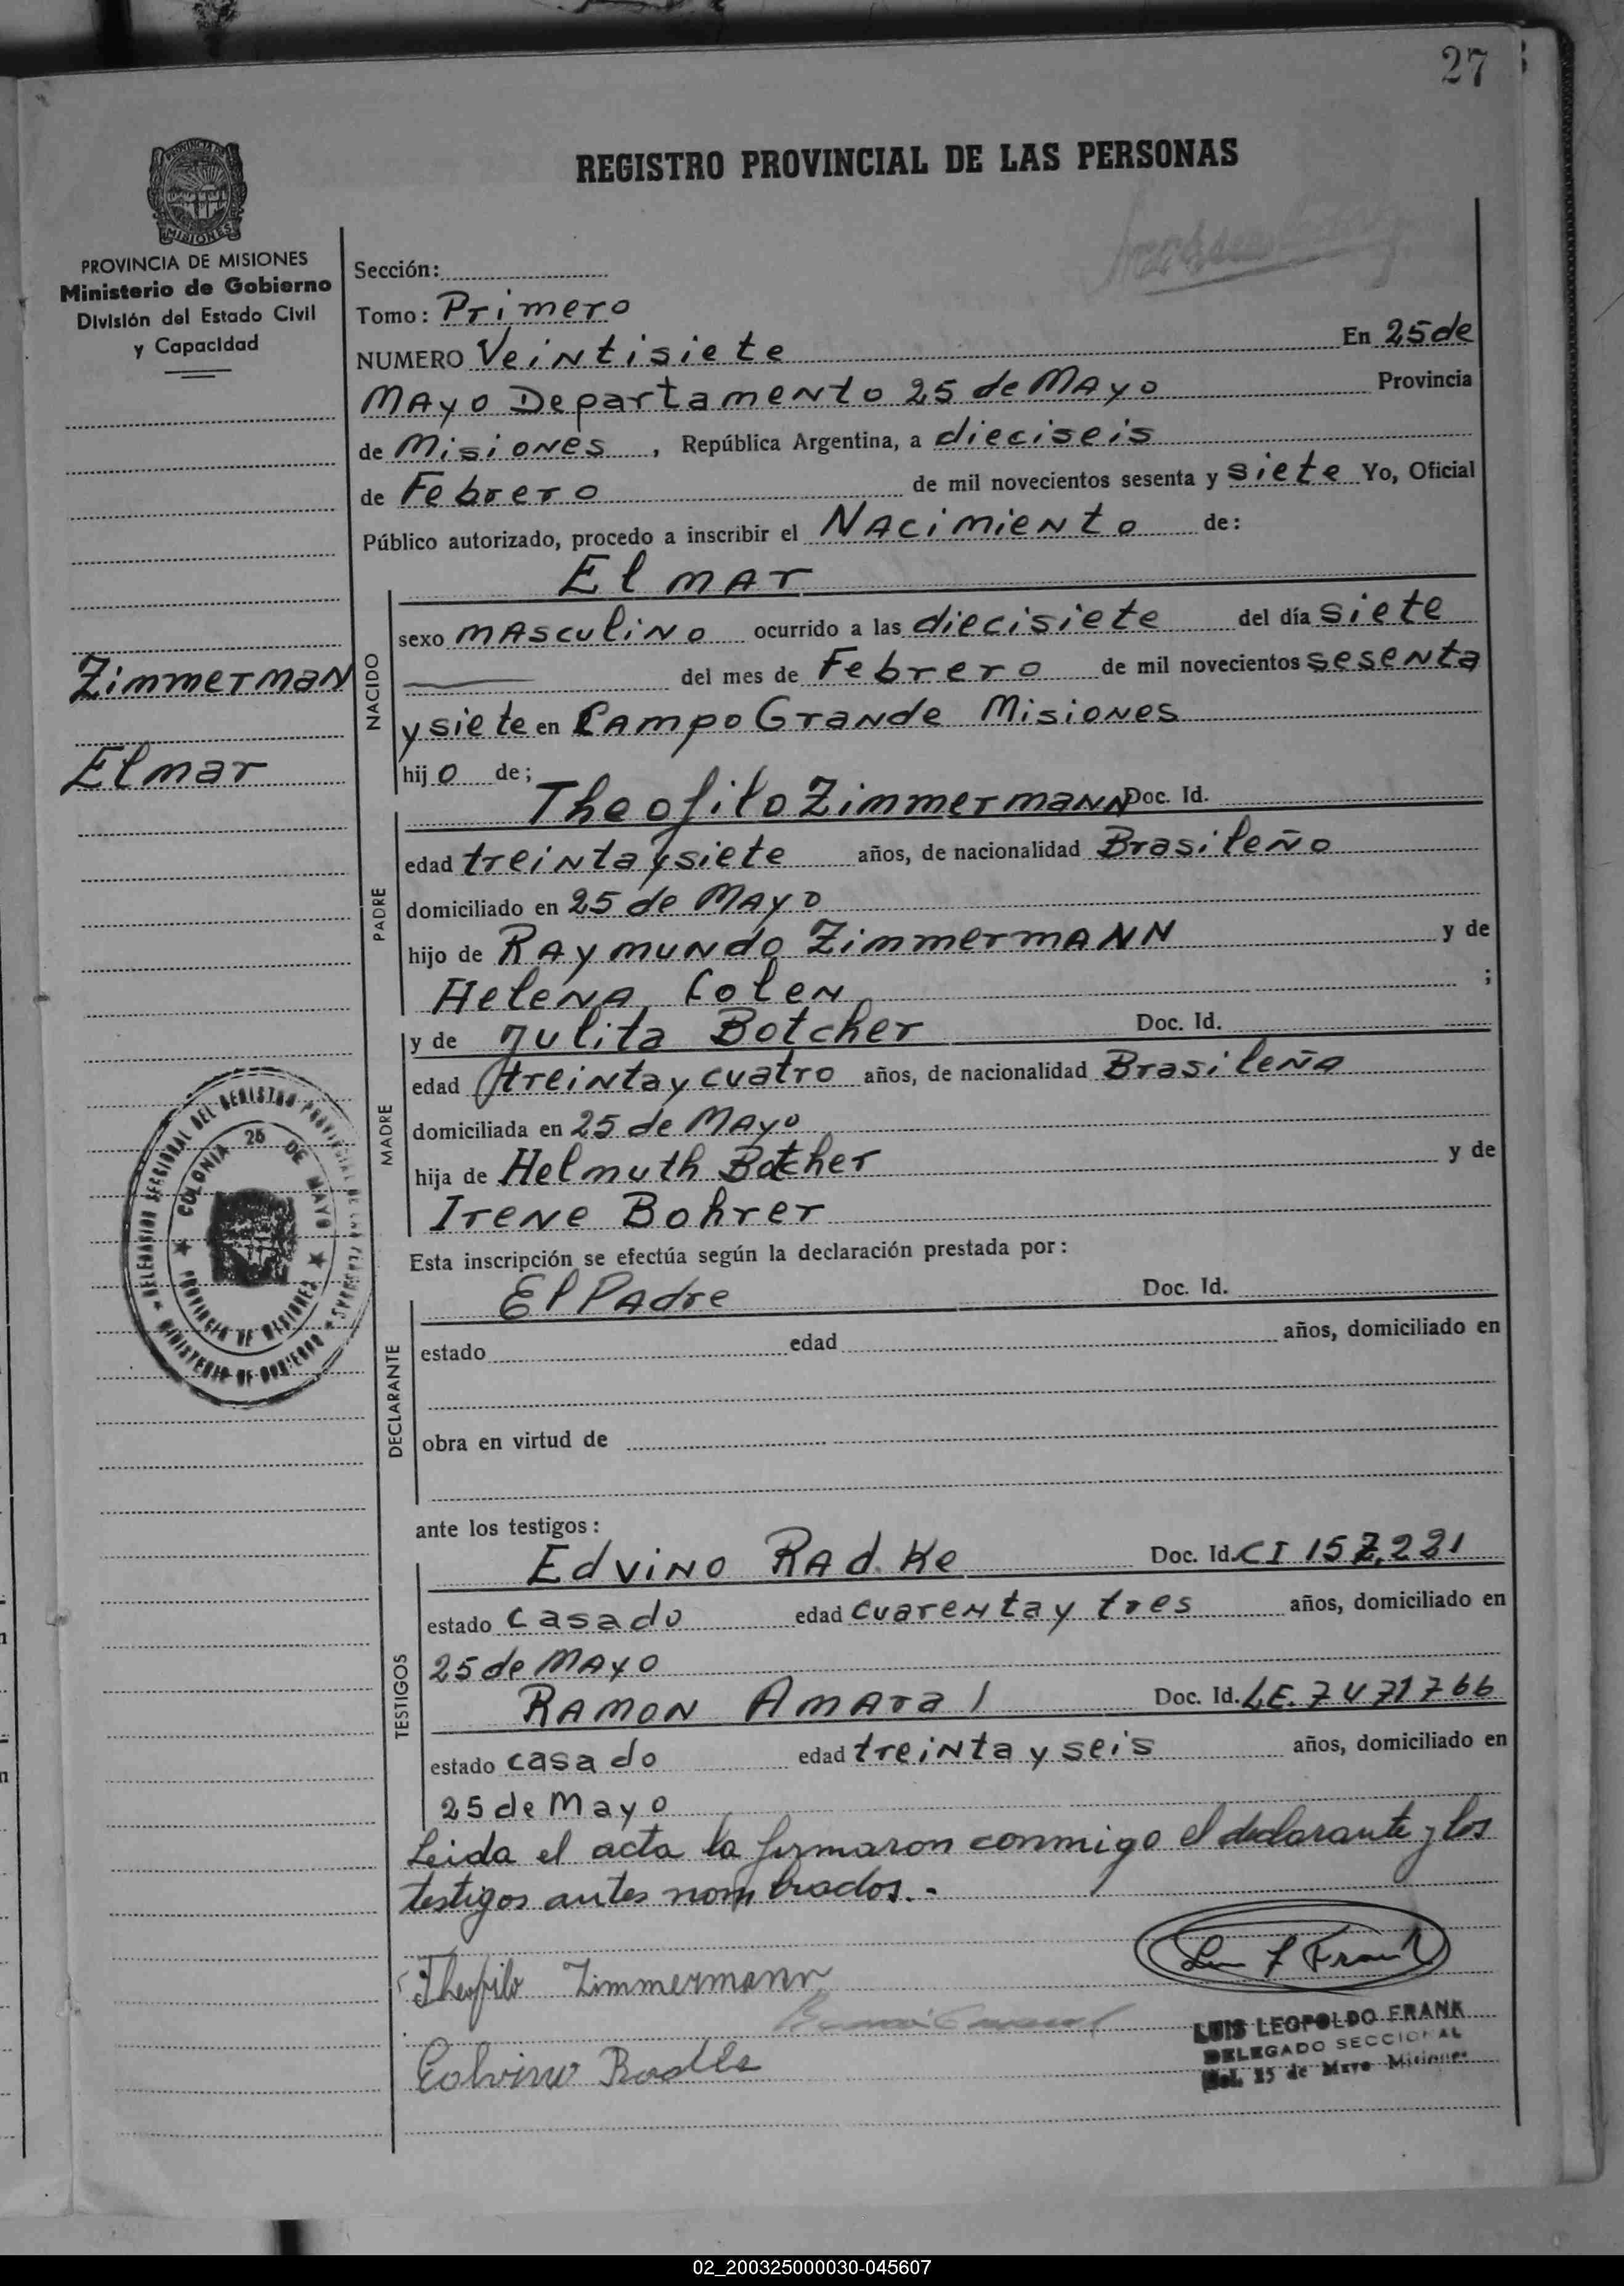 27
REGISTRO PROVINCIAL DE LAS PERSONAS
MISIONES
PROVINCIA DE MISIONES
Ministerio de Gobierno
División del Estado Civil
y Capacidad
Sección:
Tomo: Primero
NUMERO Veintisiete En 25 de
Mayo Departamento 25 de Mayo Provincia
de Misiones , República Argentina, a dieciseis
de Febrero de mil novecientos sesenta y siete Yo, Oficial
Público autorizado, procedo a inscribir el Nacimiento de:
Elmar
Zimmerman
Elmar
NACIDO
sexo masculino ocurrido a las diecisiete del día siete
del mes de Febrero de mil novecientos sesenta
y siete en Campo Grande Misiones
hijo de;
PADRE
Theofilo Zimmermann Doc. Id.
edad treinta y siete años, de nacionalidad Brasileño
domiciliado en 25 de Mayo
hijo de Raymundo Zimmermann y de
Helena Colen ;
MADRE
y de Julita Botcher Doc. Id.
edad treinta y cuatro años, de nacionalidad Brasileña
domiciliada en 25 de Mayo
hija de Helmuth Botcher y de
Irene Bohrer
DELEGACION SECCIONAL DEL REGISTRO PROVINCIAL DE LAS PERSONAS
MINISTERIO DE GOBIERNO
COLONIA 25 DE MAYO
PROVINCIA DE MISIONES
Esta inscripción se efectúa según la declaración prestada por:
DECLARANTE
El Padre Doc. Id.
estado edad años, domiciliado en
obra en virtud de
ante los testigos:
TESTIGOS
Edvino Radke Doc. Id. CI 157,221
estado casado edad cuarenta y tres años, domiciliado en
25 de Mayo
Ramon Amaral Doc. Id. LE. 7471766
estado casado edad treinta y seis años, domiciliado en
25 de Mayo
Leida el acta la firmaron conmigo el declarante y los
testigos antes nombrados.-
Theofilo Zimmermann
LUIS LEOPOLDO FRANK
DELEGADO SECCIONAL
Col. 25 de Mayo Misiones
02_200325000030-045607